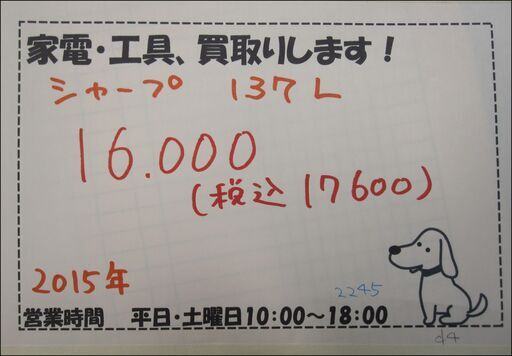 家電・工具、買取りします！
シャープ 137L
16.000
(税込 17600)
2015年
2245
営業時間 平日・土曜日10:00～18:00
d4